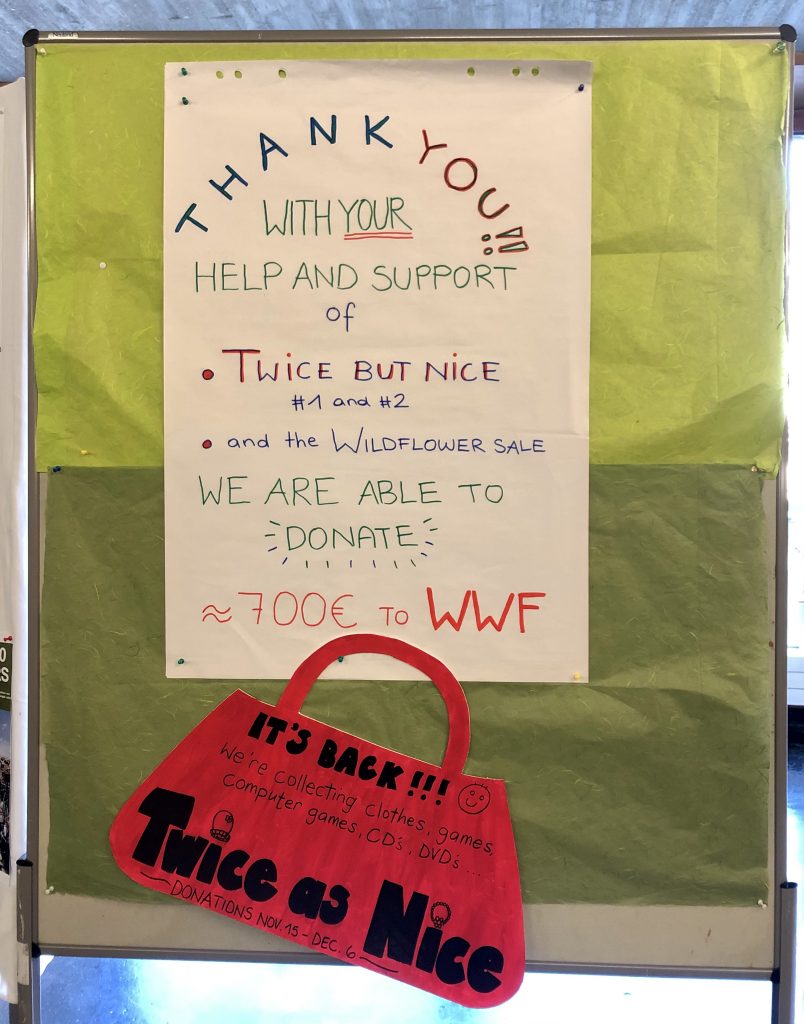 THANK YOU!!
WITH YOUR
HELP AND SUPPORT
of
• TWiCE BUT NiCE
#1 and #2
• and the WILDFLOWER SALE
WE ARE ABLE TO
DONATE
≈ 700€ TO WWF
IT'S BACK!!!
We're collecting clothes, games,
computer games, CD's, DVD's ....
Twice as Nice
DONATIONS NOV. 15 - DEC. 6